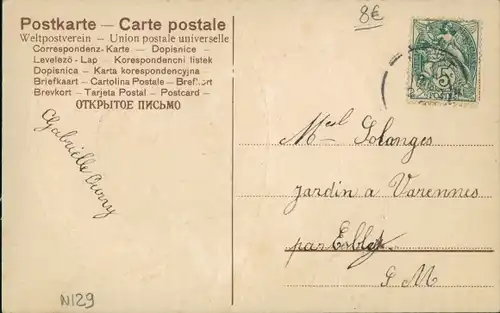 Postkarte — Carte postale
Weltpostverein — Union postale universelle
Correspondenz-Karte — Dopisnice
Levelező-Lap — Korespondencni listek
Dopisnica — Karta korespondencyjna
Briefkaart — Cartolina Postale — Brefkort
Brevkort — Tarjeta Postal — Postcard —
ОТКРЫТОЕ ПИСЬМО
Gabrielle
8€
5
Solanges
jardin a Varennes
par Esbly
S M
N129